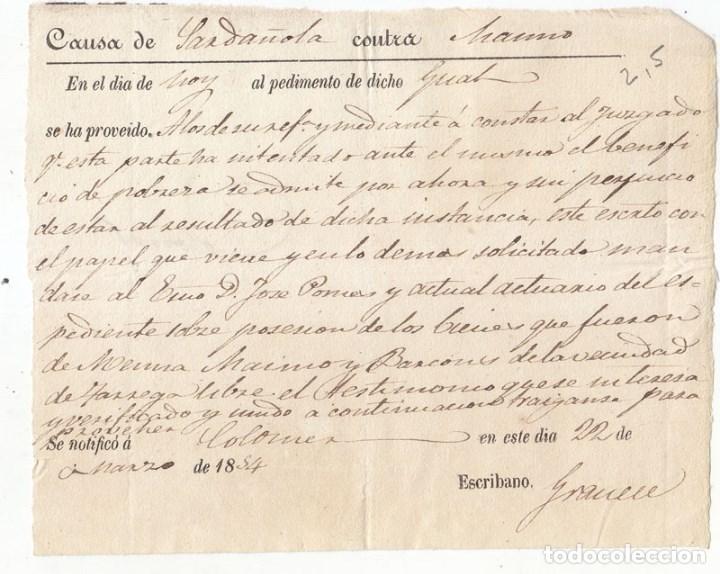 Causa de Sardañola contra Maimo
2,5
En el dia de hoy al pedimento de dicho Gual
se ha proveido. A los de su ref.ª y mediante á constar al Juzgado
q.e esta parte ha intentado ante el mismo el benefi
cio de pobreza se admite por ahora y sin perjuicio
de estar al resultado de dicha instancia, este escrito con
el papel que viene y en lo demas solicitado man
dase al Esno D. Jose Pomes y actual actuario del es-
pediente sobre posesion de los bienes que fueron
de Maimo y de la vecindad
de Tarrega libre el testimonio que se interesa
y verificado y unido a continuacion traiganse para
proveher
Se notificó á Colomer en este dia 22 de
Marzo de 1854
Escribano.